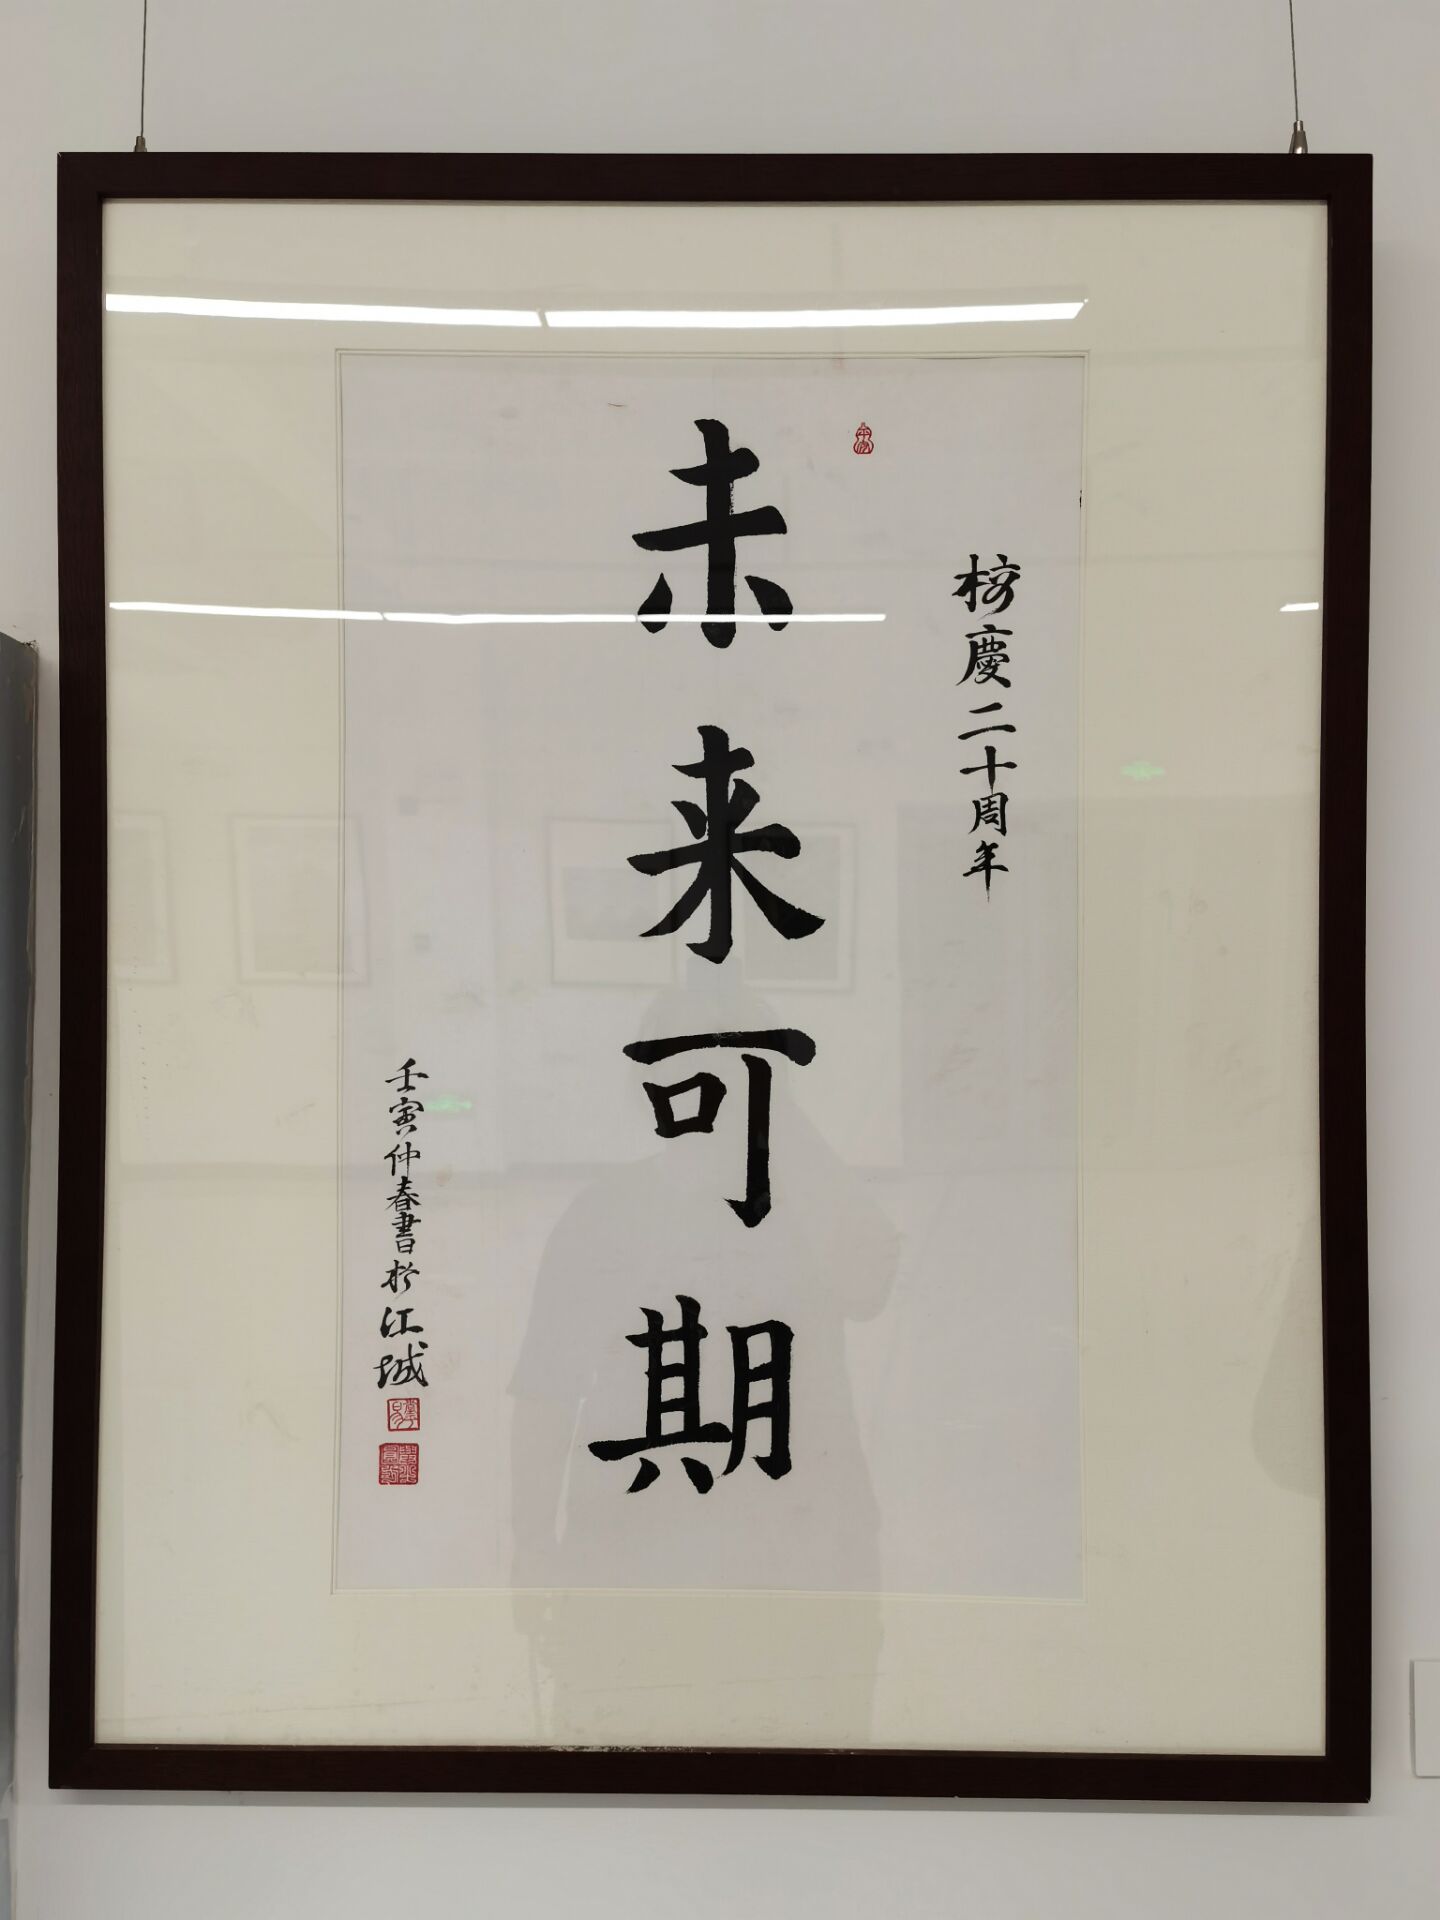 校慶二十周年
未来可期
壬寅仲春書於江城